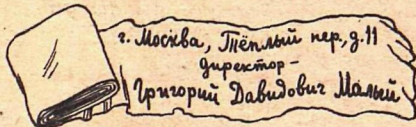 г. Москва, Тёплый пер, д. 11
директор -
Григорий Давидович Малый